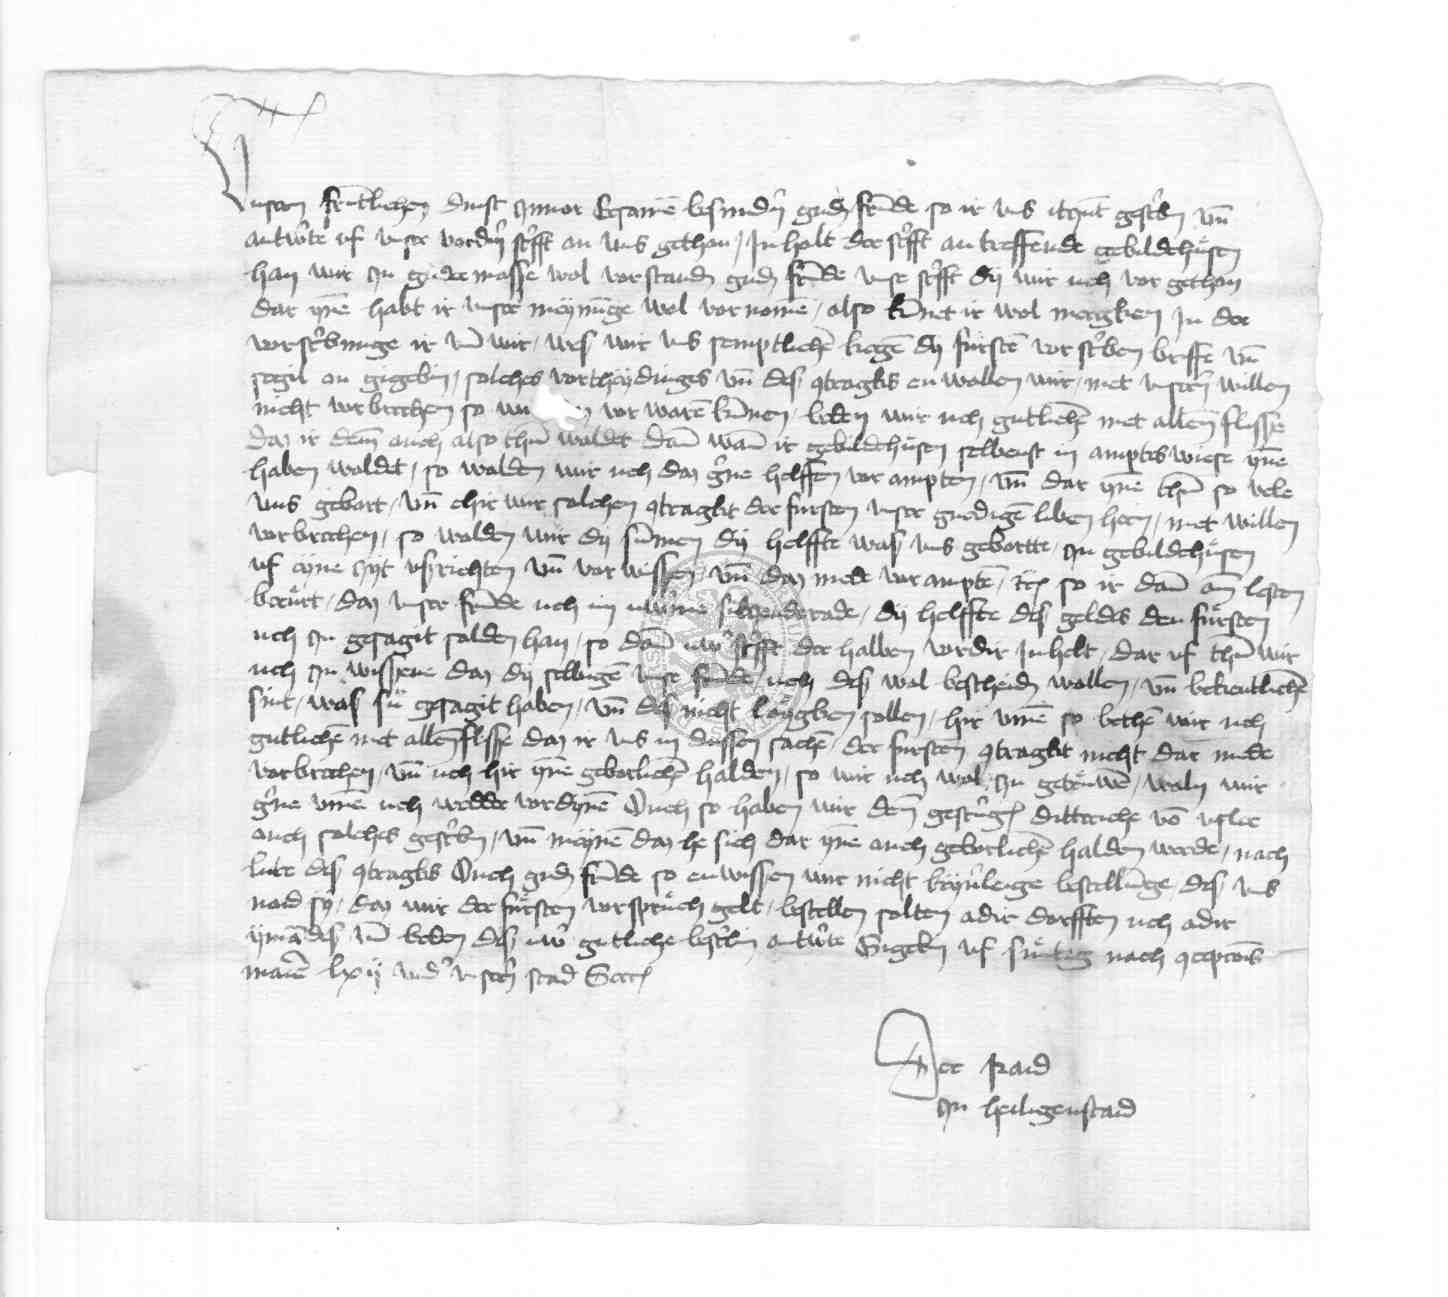 Unsern fruntlichen dinst zuvor Ersame besundern guden frunde so ir uns itzunt geschreben und
antworte uf unser vordern schrifft an uns gethan / Inhalt der schrifft antreffende gebildehusen
han wir zu guder masse wol vorstanden guden frunde unse schrifft dy wir uch vor gethan
dar ynne habt ir unser meynunge wol vornomen / also kunnet ir wol mercken In der
vorschribunge ir und wir / wes wir uns semptlichen kegen dy fursten vorschreben briffe und
segil an gigebin / solches vortheydinges und des contragkts en wollen wir / met unserm willen
nicht vorbrechen so vorwaren kunnen / beden wir uch gutlichen met allem flisse
daz ir dem auch also thun woldet dan wan ir gebildehusen selbenst in amptes wiese ynne
haben woldet / so wolden wir uch daz gerne helffen vor ampten / und dar ynne thun so vele
uns gebort / und ehir wir solchen contragkt der fursten unser gnedigen liben hern / met willen
vorbrechen / so wolden wir dy summen dy helffte was uns gebortte / zu gebildehusen
uf eyne zyt usrichten und vorwissen und daz mede vor ampten / so ir dan am lesten
berurt / daz unser frunde uch im / dy helffte des geldes den fursten
uch zu gesagit solden han / so dan uwer schrifft der halben vordir Inhelt / dar uf thun wir
uch zu wissene daz dy selbigen unse frunde / uch des wol bescheiden wollen / und bekentlichen
sint / was su gesagit haben / und des nicht lougken sollen / hir umme so bethen wir uch
gutlichen met allem flisse daz ir uns in dussen sachen / der fursten contragkt nicht dar mede
vorbrechen / und uch hir ynne geborlichen halden / so wir uch wol zu getruwen / woln wir
gerne umme uch wedder vordynen Ouch so haben wir dem gestrengen dittriche von uslar
auch solches geschreben / und meynen daz he sich dar ynne auch geborlichen halden werde / nach
lute des contragkts Ouch guden frunde so en wissen wir nicht bestellunge / des uns
noid sy / daz wir der fursten vorspruch gelt / bestellen solten adir dorfften uch adir
ymandes um beden des uwer gutliche beschreben antworte Gegeben uf suntag nach concepcionis
marie lxij under unserm stad Secret

Der Raid
zu heiligenstaid